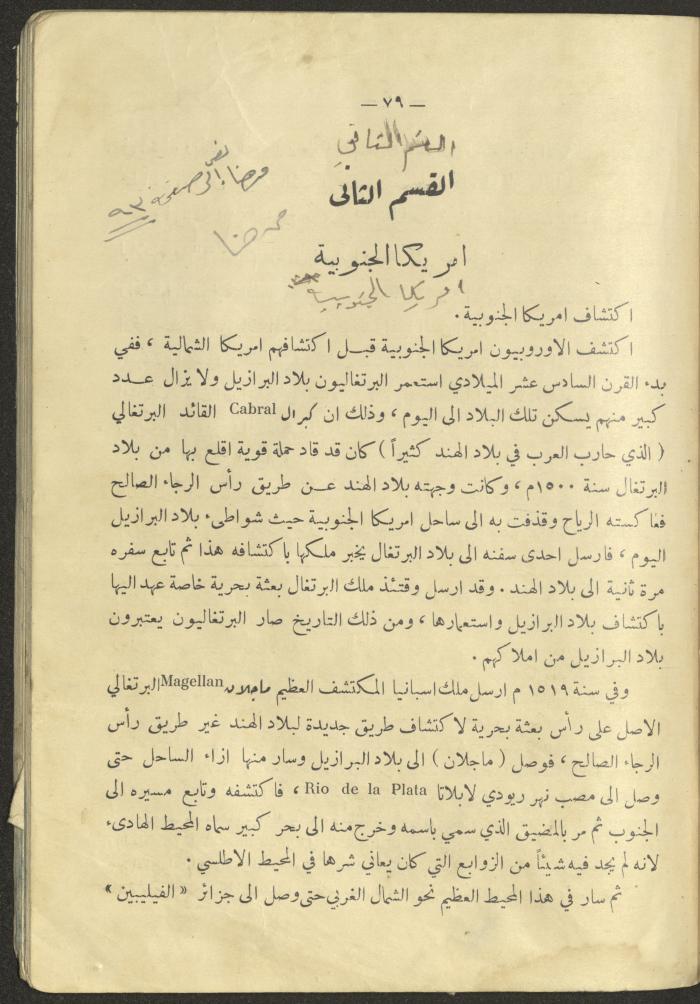 — ٧٩ —
القسم الثاني
القسم الثانى
صفحة ٩٣
امريكا الجنوبية
امريكا الجنوبية
اكتشاف امريكا الجنوبية .
اكتشف الاوروبيون امريكا الجنوبية قبل اكتشافهم امريكا الشمالية ، ففي
بدء القرن السادس عشر الميلادي استعمر البرتغاليون بلاد البرازيل ولا يزال عدد
كبير منهم يسكن تلك البلاد الى اليوم ، وذلك ان كبرال Cabral القائد البرتغالي
( الذي حارب العرب في بلاد الهند كثيراً ) كان قد قاد حملة قوية اقلع بها من بلاد
البرتغال سنة ١٥٠٠م ، وكانت وجهته بلاد الهند عن طريق رأس الرجاء الصالح
فعاكسته الرياح وقذفت به الى ساحل امريكا الجنوبية حيث شواطىء بلاد البرازيل
اليوم ، فارسل احدى سفنه الى بلاد البرتغال يخبر ملكها باكتشافه هذا ثم تابع سفره
مرة ثانية الى بلاد الهند . وقد ارسل وقتئذ ملك البرتغال بعثة بحرية خاصة عهد اليها
باكتشاف بلاد البرازيل واستعمارها ، ومن ذلك التاريخ صار البرتغاليون يعتبرون
بلاد البرازيل من املاكهم .
وفي سنة ١٥١٩ م ارسل ملك اسبانيا المكتشف العظيم ماجلان Magellan البرتغالي
الاصل على رأس بعثة بحرية لاكتشاف طريق جديدة لبلاد الهند غير طريق رأس
الرجاء الصالح ، فوصل ( ماجلان ) الى بلاد البرازيل وسار منها ازاء الساحل حتى
وصل الى مصب نهر ريودي لابلاتا Rio de la Plata ، فاكتشفه وتابع مسيره الى
الجنوب ثم مر بالمضيق الذي سمي باسمه وخرج منه الى بحر كبير سماه المحيط الهادىء
لانه لم يجد فيه شيئاً من الزوابع التي كان يعاني شرها في المحيط الاطلسي .
ثم سار في هذا المحيط العظيم نحو الشمال الغربي حتى وصل الى جزائر « الفيليبين »